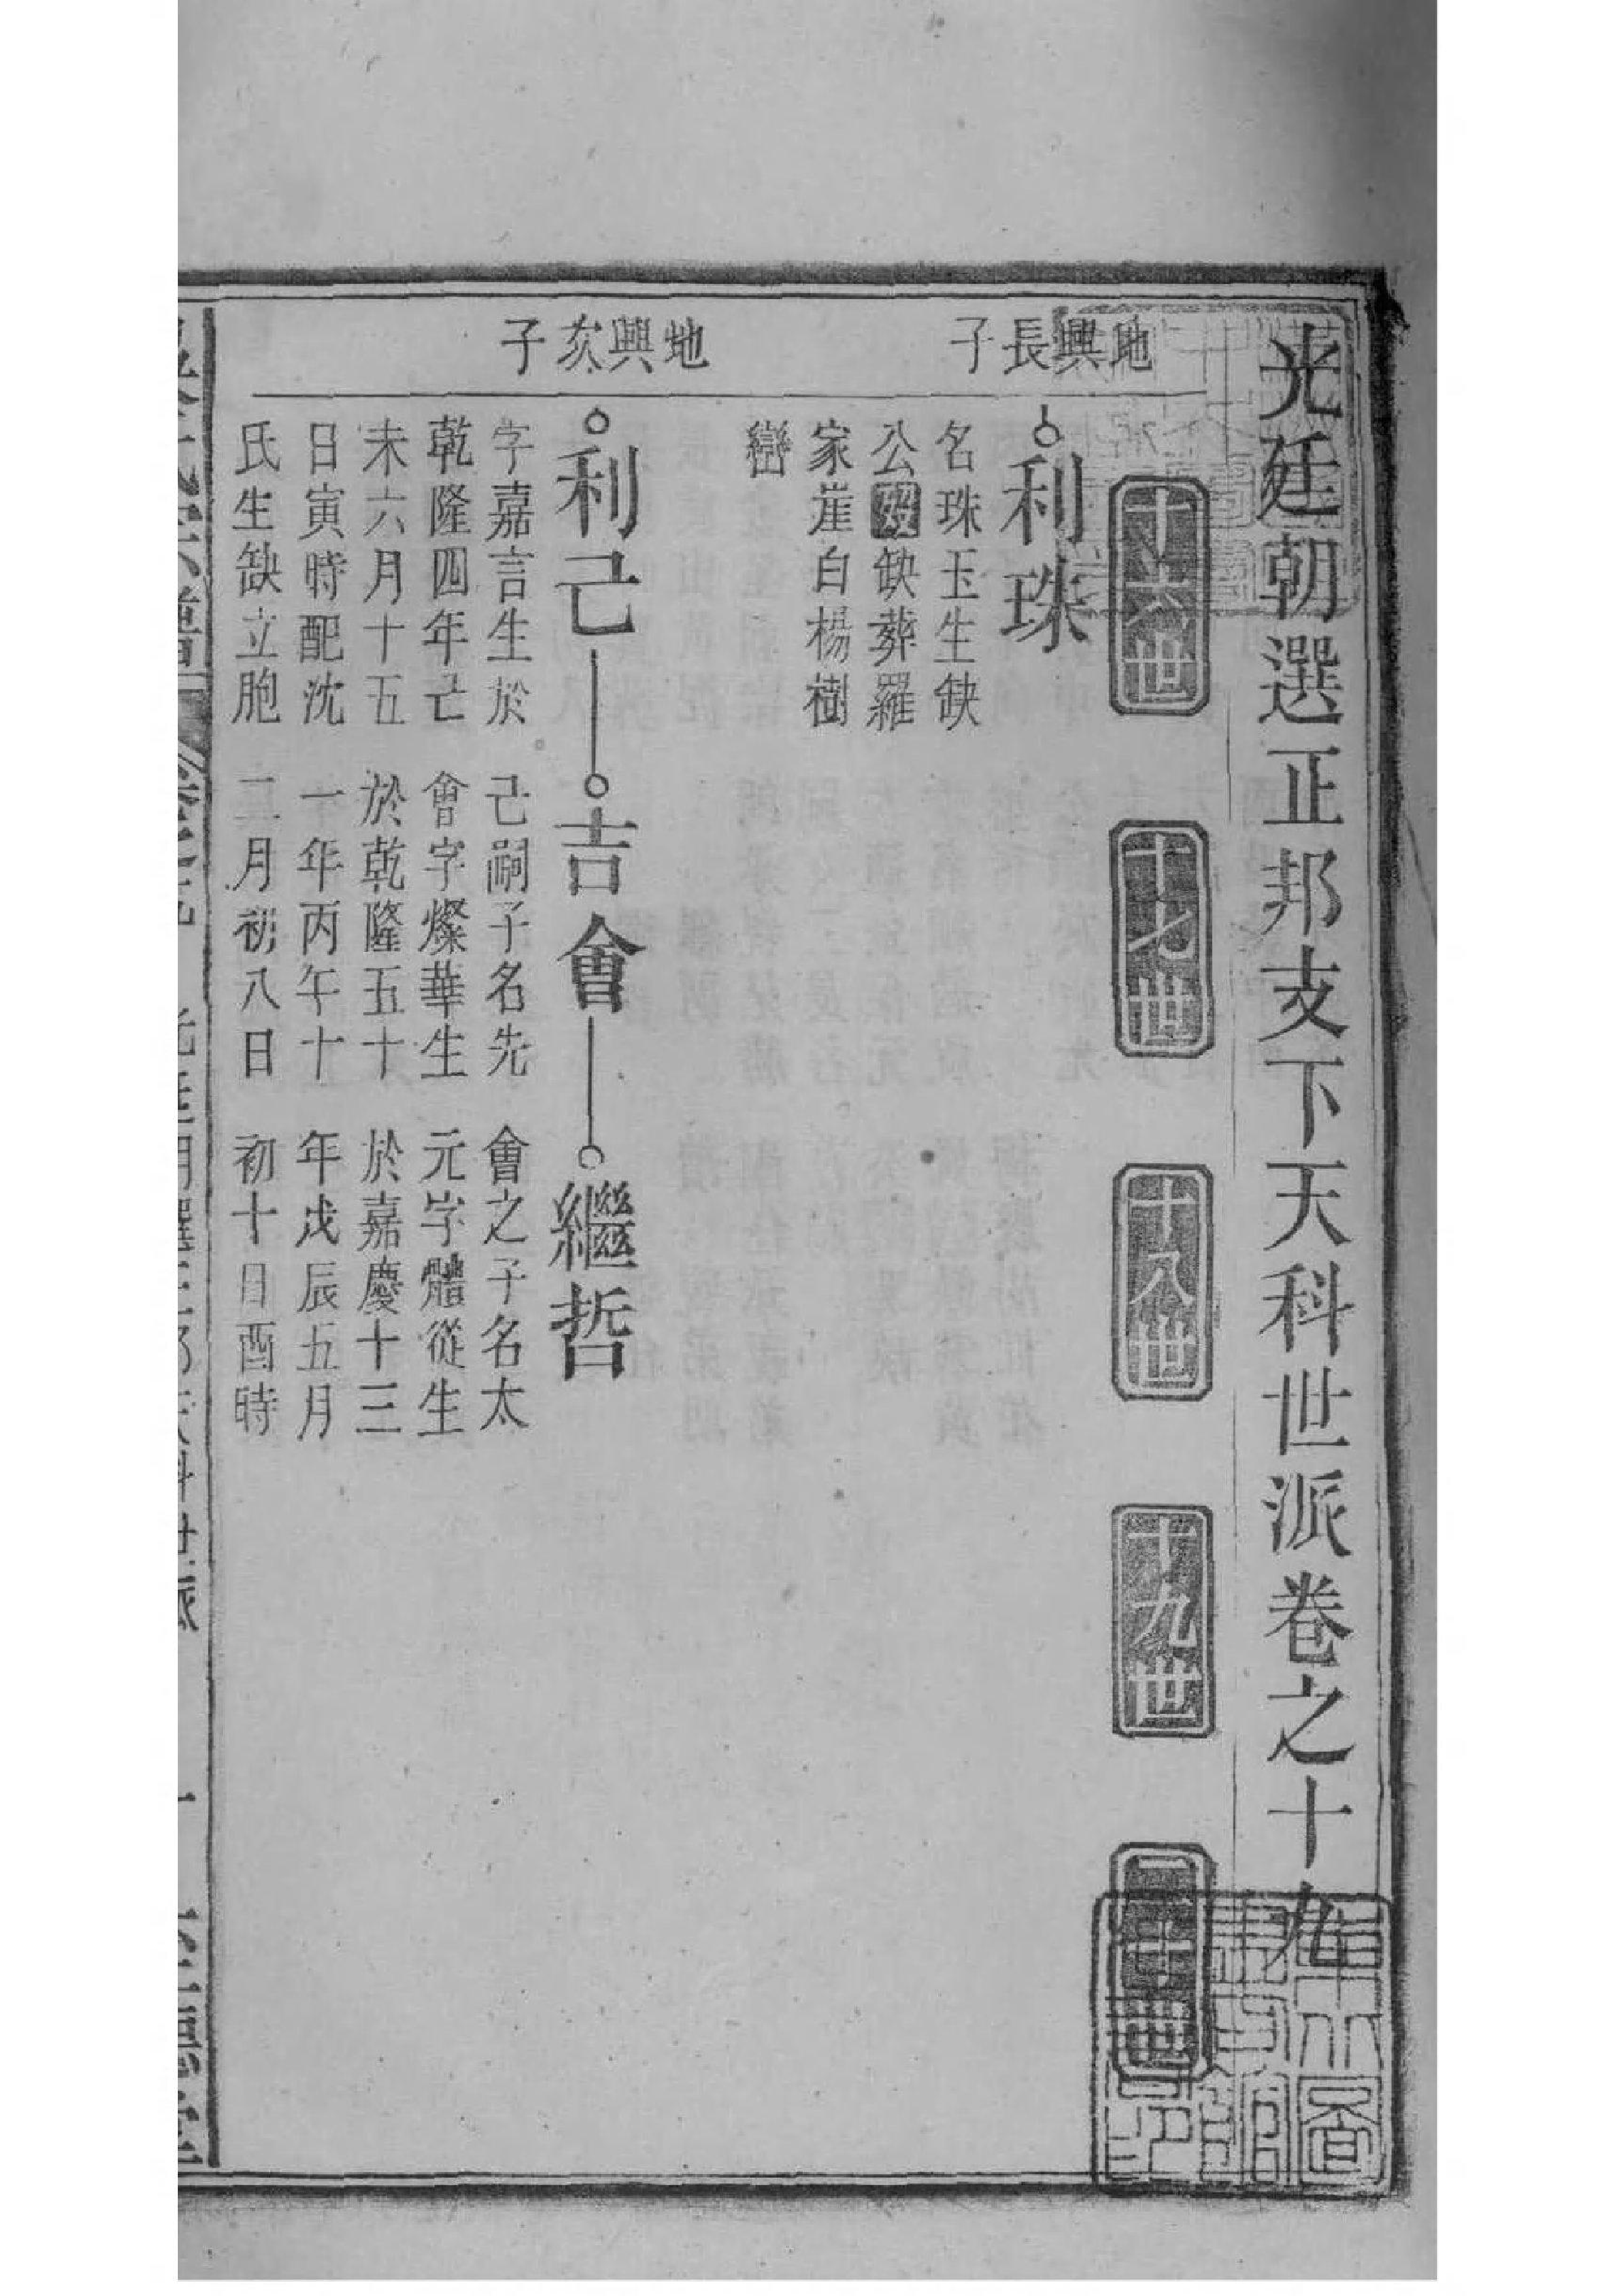 光廷朝選正邦支下天科世派卷之十九
十六世
十七世
十八世
十九世
二十世
地興長子
利珠
名珠玉生缺
公歿缺葬羅
家崖白楊樹
巒
地興次子
利己
字嘉言生於
乾隆四年己
未六月十五
日寅時配沈
氏生缺立胞
吉會
己嗣子名先
會字燦華生
於乾隆五十
一年丙午十
二月初八日
繼哲
會之子名太
元字體從生
於嘉慶十三
年戊辰五月
初十日酉時